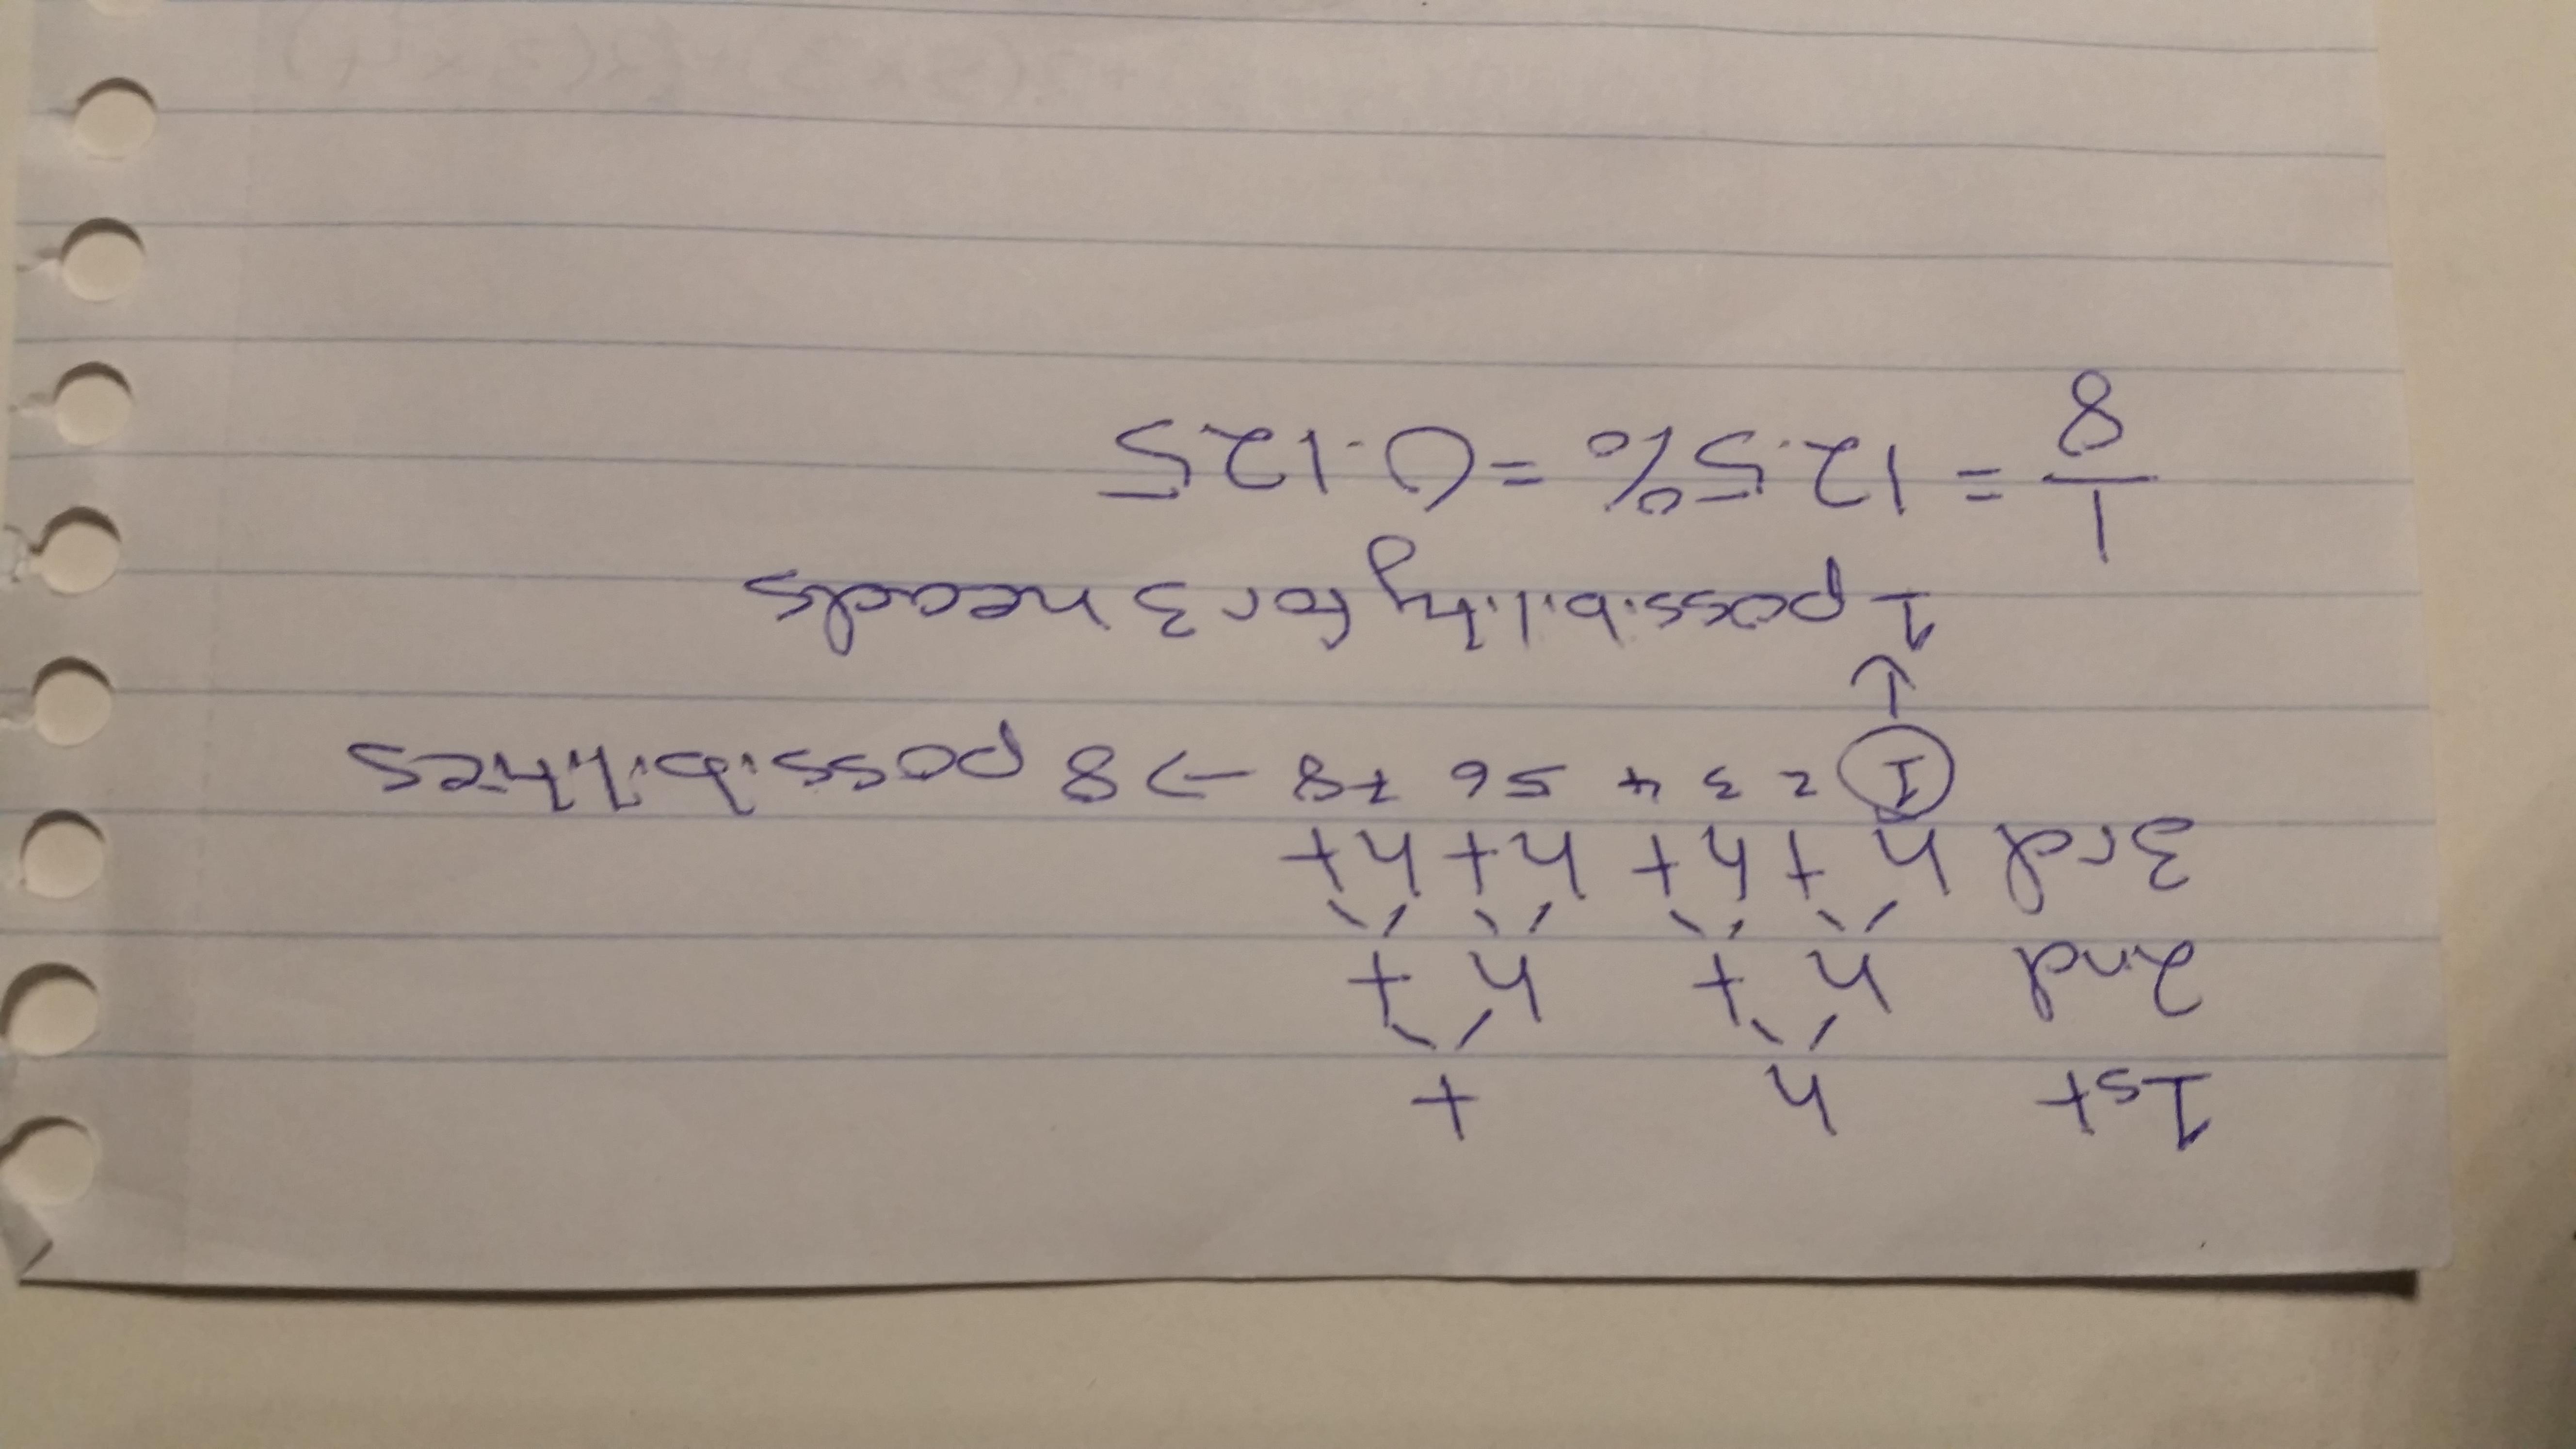 1st h t
2nd h t h t
3rd h t h t h t h t
1 2 3 4 5 6 7 8 → 8 possibilities
↓
1 possibility for 3 heads
1/8 = 12.5% = 0.125